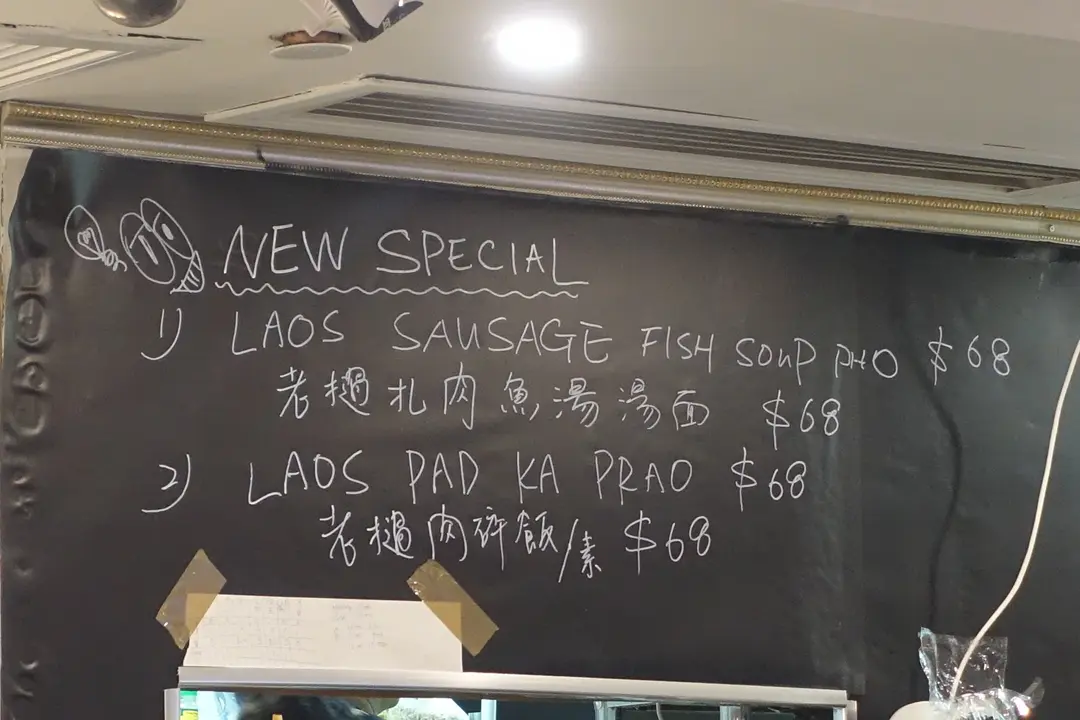 NEW SPECIAL
1) LAOS SAUSAGE FISH SOUP PHO $68
老撾扎肉魚湯湯面 $68
2) LAOS PAD KA PRAO $68
老撾肉碎飯/素 $68